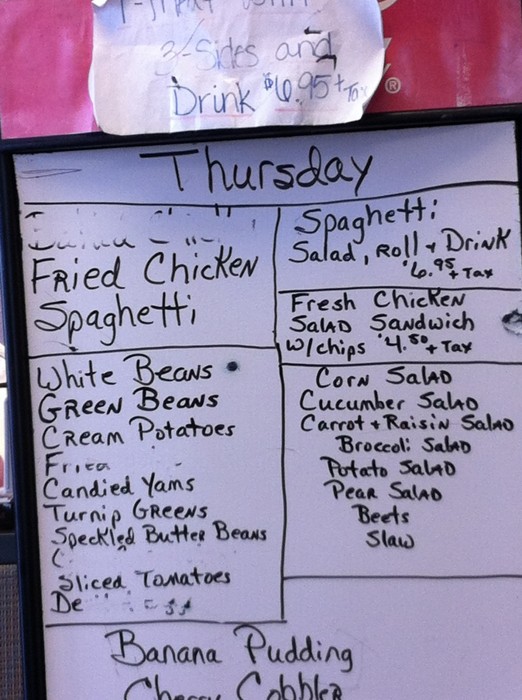 3-Sides and
Drink $6.95 + Tax
®
Thursday
Fried Chicken
Spaghetti
White Beans
Green Beans
Cream Potatoes
Candied Yams
Turnip Greens
Speckled Butter Beans
Sliced Tomatoes
Spaghetti
Salad, Roll + Drink
$6.95 + Tax
Fresh Chicken
Salad Sandwich
w/chips $4.50 + Tax
Corn Salad
Cucumber Salad
Carrot + Raisin Salad
Broccoli Salad
Potato Salad
Pear Salad
Beets
Slaw
Banana Pudding
Cherry Cobbler